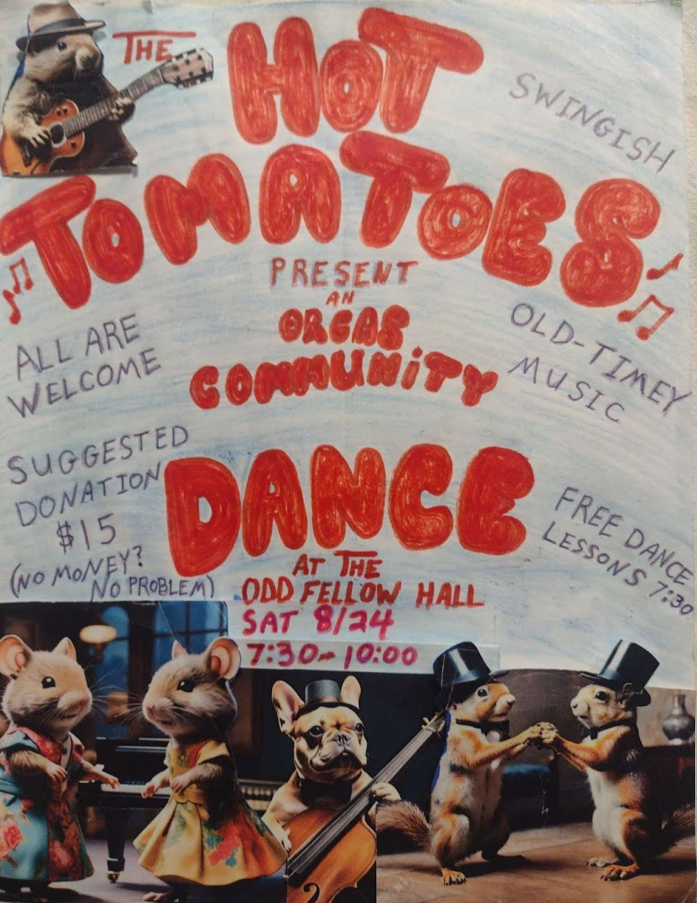 THE
HOT
TOMATOES
SWINGISH
PRESENT
AN
ORCAS
COMMUNITY
DANCE
ALL ARE
WELCOME
OLD-TIMEY
MUSIC
SUGGESTED
DONATION
$15
(NO MONEY?
NO PROBLEM)
FREE DANCE
LESSONS 7:30
AT THE
ODD FELLOW HALL
SAT 8/24
7:30-10:00